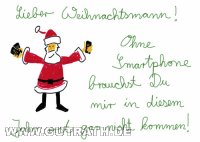 Lieber Weihnachtsmann!
Ohne
Smartphone
brauchst Du
mir in diesem
Jahr erst gar nicht kommen!
WWW.GUTRATH.DE